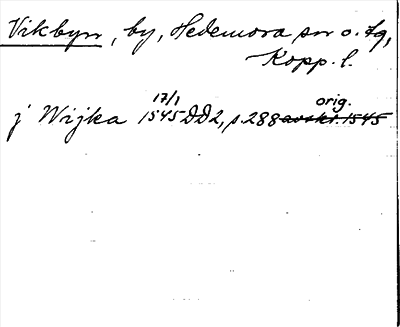 Vikbyn, by, Hedemora sn o. tg,
Kopp. l.
17/1 orig.
j Wijka 1545 DD2, s. 288 avskr. 1545